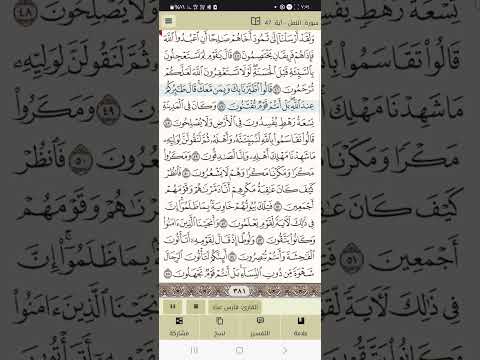 سورة النمل - آية 47
وَلَقَدْ أَرْسَلْنَآ إِلَىٰ ثَمُودَ أَخَاهُمْ صَٰلِحًا أَنِ ٱعْبُدُوا۟ ٱللَّهَ
فَإِذَا هُمْ فَرِيقَانِ يَخْتَصِمُونَ ٤٥ قَالَ يَٰقَوْمِ لِمَ تَسْتَعْجِلُونَ
بِٱلسَّيِّئَةِ قَبْلَ ٱلْحَسَنَةِ لَوْلَا تَسْتَغْفِرُونَ ٱللَّهَ لَعَلَّكُمْ
تُرْحَمُونَ ٤٦ قَالُوا۟ ٱطَّيَّرْنَا بِكَ وَبِمَن مَّعَكَ قَالَ طَٰٓئِرُكُمْ
عِندَ ٱللَّهِ بَلْ أَنتُمْ قَوْمٌ تُفْتَنُونَ ٤٧ وَكَانَ فِى ٱلْمَدِينَةِ
تِسْعَةُ رَهْطٍ يُفْسِدُونَ فِى ٱلْأَرْضِ وَلَا يُصْلِحُونَ ٤٨
قَالُوا۟ تَقَاسَمُوا۟ بِٱللَّهِ لَنُبَيِّتَنَّهُۥ وَأَهْلَهُۥ ثُمَّ لَنَقُولَنَّ لِوَلِيِّهِۦ
مَا شَهِدْنَا مَهْلِكَ أَهْلِهِۦ وَإِنَّا لَصَٰدِقُونَ ٤٩ وَمَكَرُوا۟
مَكْرًا وَمَكَرْنَا مَكْرًا وَهُمْ لَا يَشْعُرُونَ ٥٠ فَٱنظُرْ
كَيْفَ كَانَ عَٰقِبَةُ مَكْرِهِمْ أَنَّا دَمَّرْنَٰهُمْ وَقَوْمَهُمْ
أَجْمَعِينَ ٥١ فَتِلْكَ بُيُوتُهُمْ خَاوِيَةًۢ بِمَا ظَلَمُوٓا۟ إِنَّ
فِى ذَٰلِكَ لَءَايَةً لِّقَوْمٍ يَعْلَمُونَ ٥٢ وَأَنجَيْنَا ٱلَّذِينَ ءَامَنُوا۟
وَكَانُوا۟ يَتَّقُونَ ٥٣ وَلُوطًا إِذْ قَالَ لِقَوْمِهِۦٓ أَتَأْتُونَ
ٱلْفَٰحِشَةَ وَأَنتُمْ تُبْصِرُونَ ٥٤ أَئِنَّكُمْ لَتَأْتُونَ ٱلرِّجَالَ
شَهْوَةً مِّن دُونِ ٱلنِّسَآءِ بَلْ أَنتُمْ قَوْمٌ تَجْهَلُونَ ٥٥
٣٨١
القارئ: فارس عباد
علامة
التفسير
نسخ
مشاركة